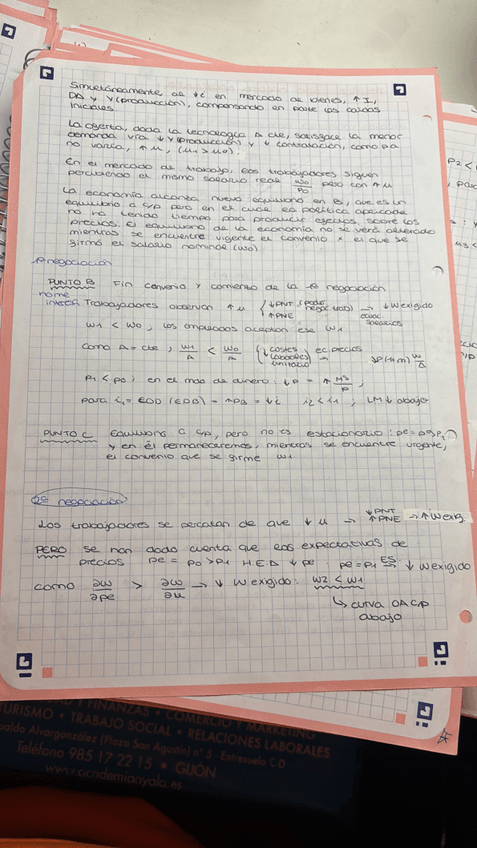 Simultáneamente, de ↓c en mercado de bienes, ↑ I,
DA y Y (producción), compensando en parte las caídas
iniciales.
La oferta, dada la tecnología A cte, satisface la menor
demanda vía ↓ Y (producción) y ↓ contratación, como pa
no varía, ↑ u, (u1 > u0).
En el mercado de trabajo, los trabajadores siguen
percibiendo el mismo salario real W0/P0 pero con ↑ u
La economía alcanza nuevo equilibrio en B, que es un
equilibrio a c/p pero en el cual la política aplicada
no ha tenido tiempo para producir efectos sobre los
precios. El equilibrio de la economía no se verá alterado
mientras se encuentre vigente el convenio x el que se
firmó el salario nominal (W0).
negociación
PUNTO B Fin convenio y comienzo de la negociación
nome
interesa Trabajadores observan ↑ u { ↓PNT (poder negoc trab) ↑ PNE → ↓ W exigido
ecuac. salarios
W1 < W0, los empresarios aceptan ese W1
Como A = cte, W1/A < W0/A (↓ costes laborales unitarios) ec. precios → ↓P (1+m) W/A
P1 < P0, en el mdo de dinero: ↓P = ↑ MS/P,
para i1 = EOD (EDB) = ↑PB = ↓i i2 < i1, LM ↓ abajo
PUNTO C Equilibrio a c/p, pero no es estacionario: pe = p0 > p1
y en él permaneceremos, mientras se encuentre vigente,
el convenio que se firme W1
2ª negociación
Los trabajadores se percatan de que ↓ u → ↓PNT ↑ PNE → ↑ W exig.
PERO se han dado cuenta que las expectativas de
precios pe = p0 > p1 H.E.D ↓ pe : pe = p1 ES → ↓ W exigido
como ∂w/∂pe > ∂w/∂u → ↓ W exigido: W2 < W1
↳ curva OA C/P
abajo
FINANZAS • COMERCIO Y MARKETING
TURISMO • TRABAJO SOCIAL • RELACIONES LABORALES
Alvargonzález (Plaza San Agustín) nº 5 - Entresuelo C D
Teléfono 985 17 22 15 • GIJÓN
www.academiaayala.es